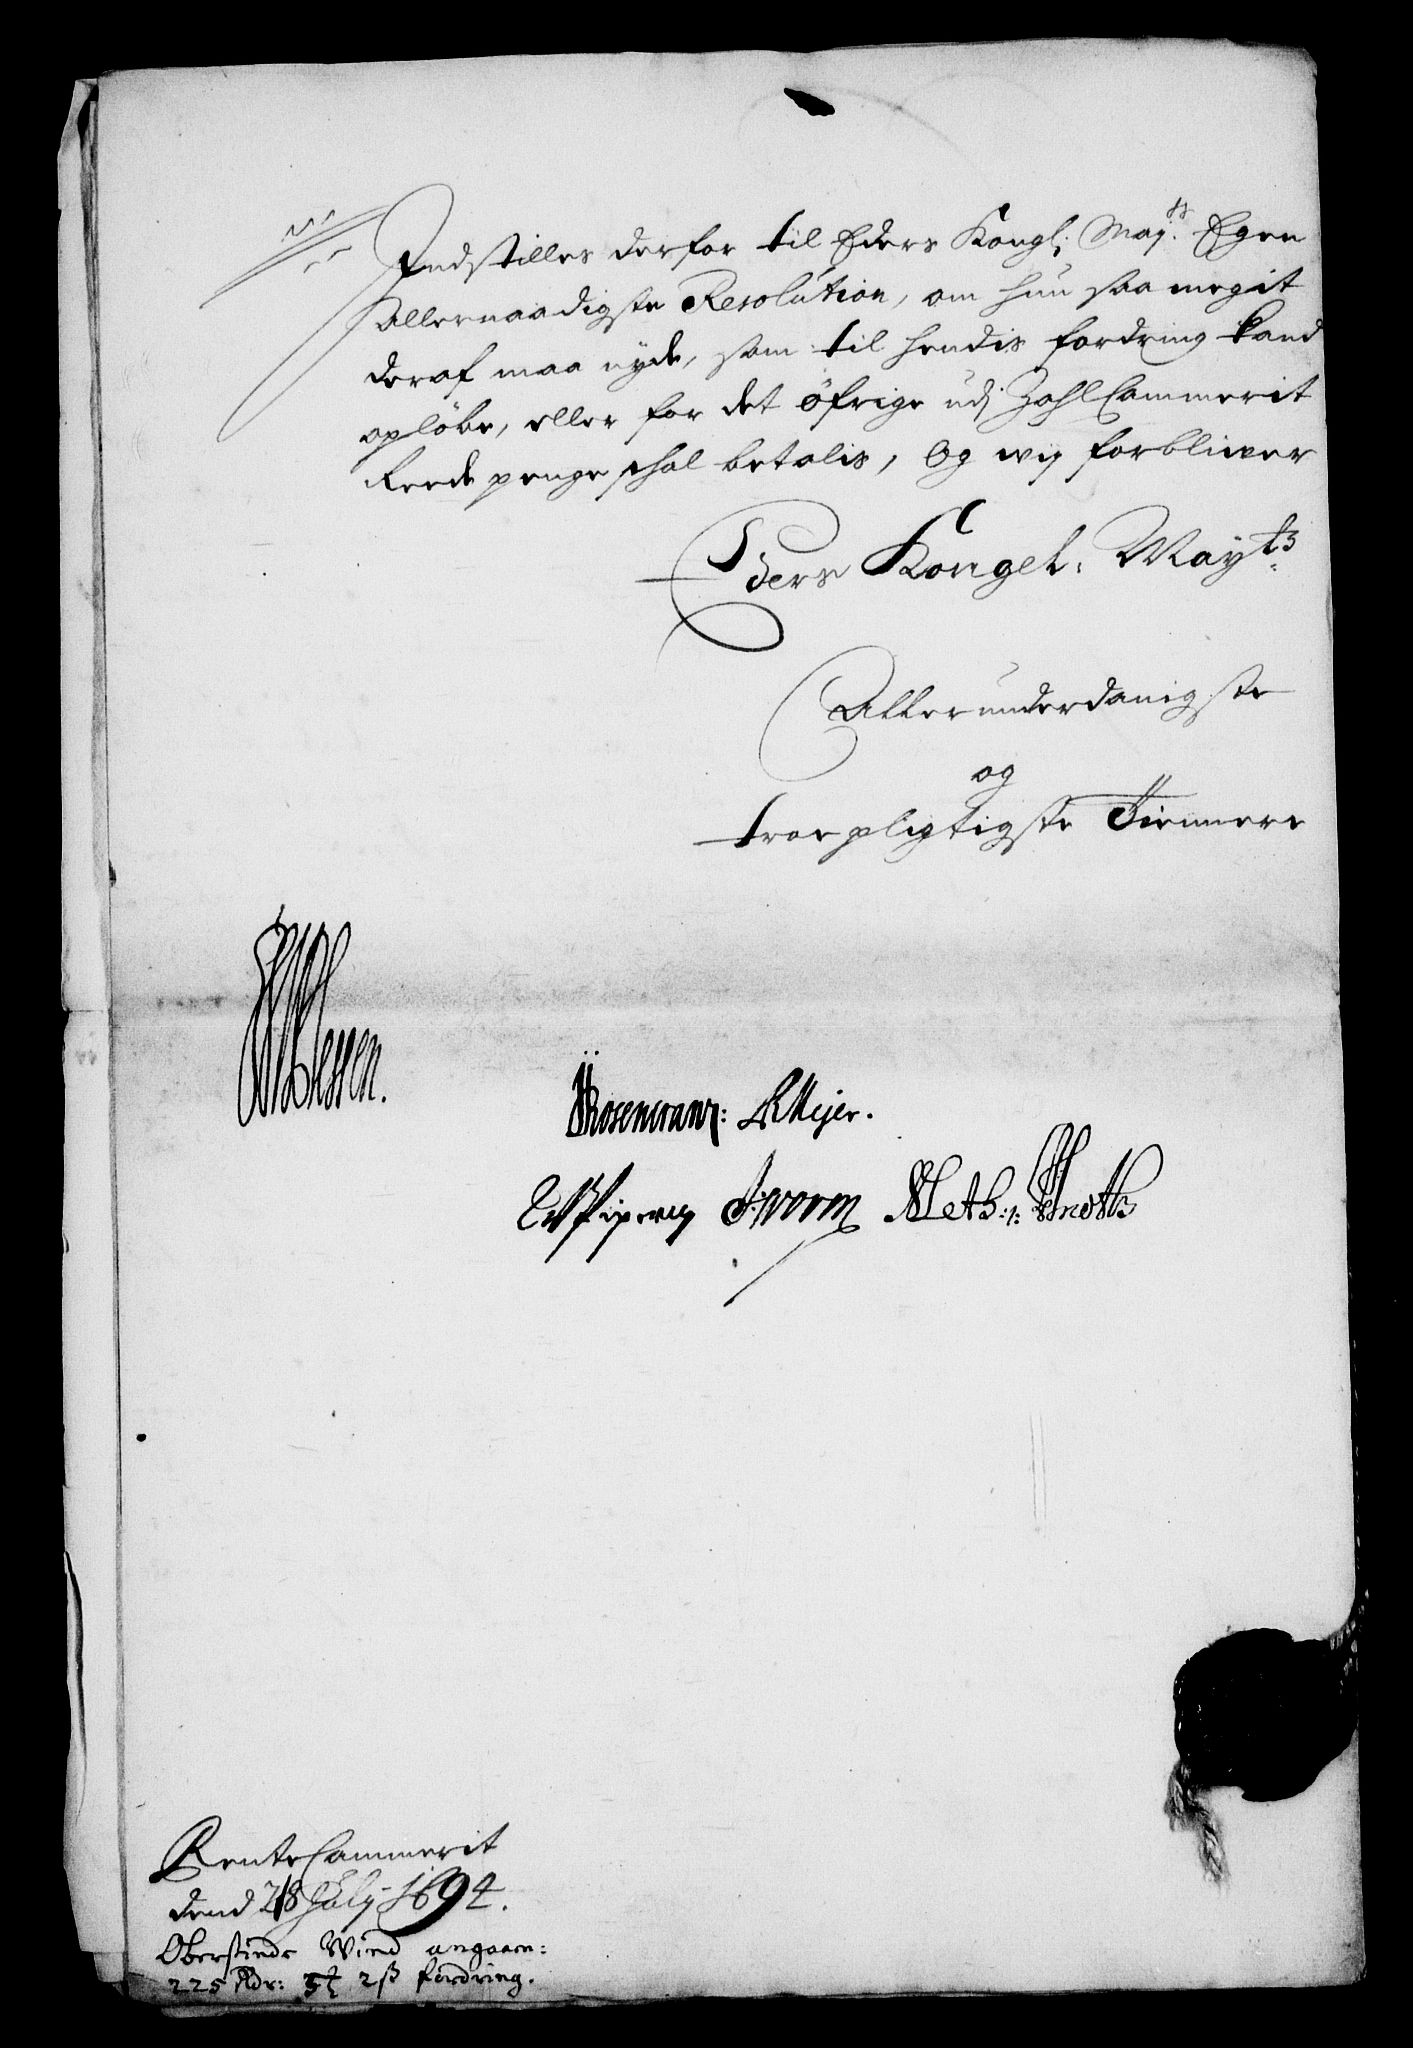 Indstilles derfor til Eders Kongl: Maj:ts Egen
allernaadigste Resolution, om hun saa megit
deraf maa nyde, som til hendis fordring kand
opløbe, eller for det øfrige udj ZahlCammerit
Reede penge schal betalis, Og wij forblifwer
Eders Kongel: Mayts
Allerunderdanigste
og
troepligtigste Tiennere
Rosencrantz: HMejer.
J: Worm
RenteCammerit
dend 28 July 1694.
Oberstinde Wind angaaen:
225 Rdr: 5½ 2ß fordring.